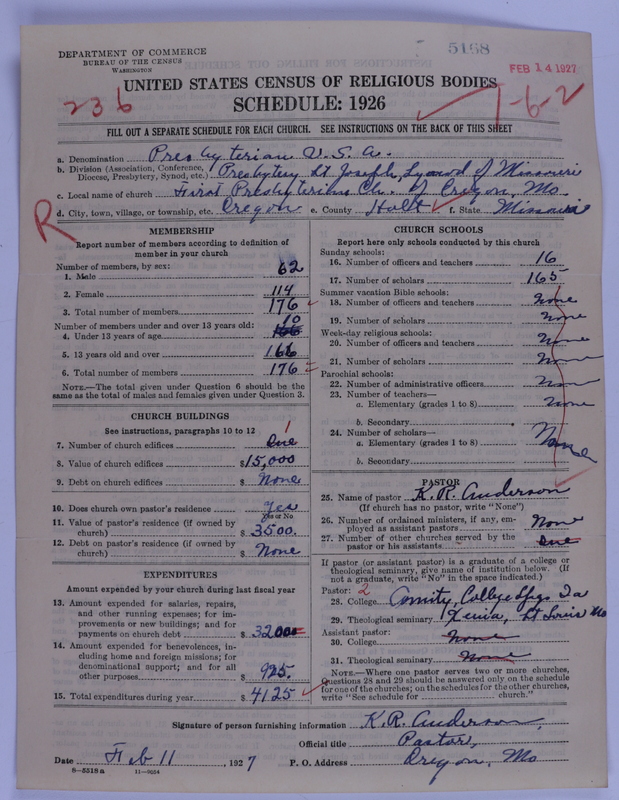 DEPARTMENT OF COMMERCE
BUREAU OF THE CENSUS
WASHINGTON
5168
FEB 14 1927
UNITED STATES CENSUS OF RELIGIOUS BODIES
SCHEDULE: 1926
236
1-6-2
FILL OUT A SEPARATE SCHEDULE FOR EACH CHURCH. SEE INSTRUCTIONS ON THE BACK OF THIS SHEET
a. Denomination Presbyterian U.S.A.
b. Division (Association, Conference, Diocese, Presbytery, Synod, etc.) Presbytery St Joseph, Synod of Missouri
c. Local name of church First Presbyterian Ch. of Oregon, Mo
d. City, town, village, or township, etc. Oregon e. County Holt f. State Missouri
R
MEMBERSHIP
Report number of members according to definition of
member in your church
Number of members, by sex:
1. Male 62
2. Female 114
3. Total number of members 176
Number of members under and over 13 years old:
4. Under 13 years of age 10
5. 13 years old and over 166
6. Total number of members 176
NOTE.—The total given under Question 6 should be the
same as the total of males and females given under Question 3.
CHURCH BUILDINGS
See instructions, paragraphs 10 to 12
7. Number of church edifices One 1
8. Value of church edifices $15,000
9. Debt on church edifices $ None
10. Does church own pastor's residence Yes
Yes or No
11. Value of pastor's residence (if owned by
church) $3500.
12. Debt on pastor's residence (if owned by
church) $ None
EXPENDITURES
Amount expended by your church during last fiscal year
13. Amount expended for salaries, repairs,
and other running expenses; for im-
provements or new buildings; and for
payments on church debt $3200
14. Amount expended for benevolences, in-
cluding home and foreign missions; for
denominational support; and for all
other purposes $ 925.
15. Total expenditures during year $4125
CHURCH SCHOOLS
Report here only schools conducted by this church
Sunday schools:
16. Number of officers and teachers 16
17. Number of scholars 165
Summer vacation Bible schools:
18. Number of officers and teachers None
19. Number of scholars None
Week-day religious schools:
20. Number of officers and teachers None
21. Number of scholars None
Parochial schools:
22. Number of administrative officers None
23. Number of teachers—
a. Elementary (grades 1 to 8) None
b. Secondary
24. Number of scholars—
a. Elementary (grades 1 to 8) None
b. Secondary
PASTOR
25. Name of pastor K. R. Anderson
(If church has no pastor, write "None")
26. Number of ordained ministers, if any, em-
ployed as assistant pastors None
27. Number of other churches served by the
pastor or his assistants One
If pastor (or assistant pastor) is a graduate of a college or
theological seminary, give name of institution below. (If
not a graduate, write "No" in the space indicated.)
Pastor: 2
28. College Amity, College Spgs Ia
29. Theological seminary Xenia, St Louis Mo
Assistant pastor:
30. College None
31. Theological seminary None
NOTE.—Where one pastor serves two or more churches,
questions 28 and 29 should be answered only on the schedule
for one of the churches; on the schedules for the other churches,
write "See schedule for church."
Signature of person furnishing information K.R. Anderson,
Official title Pastor,
Date Feb 11, 1927 P. O. Address Oregon, Mo
8-5518a 11-9034